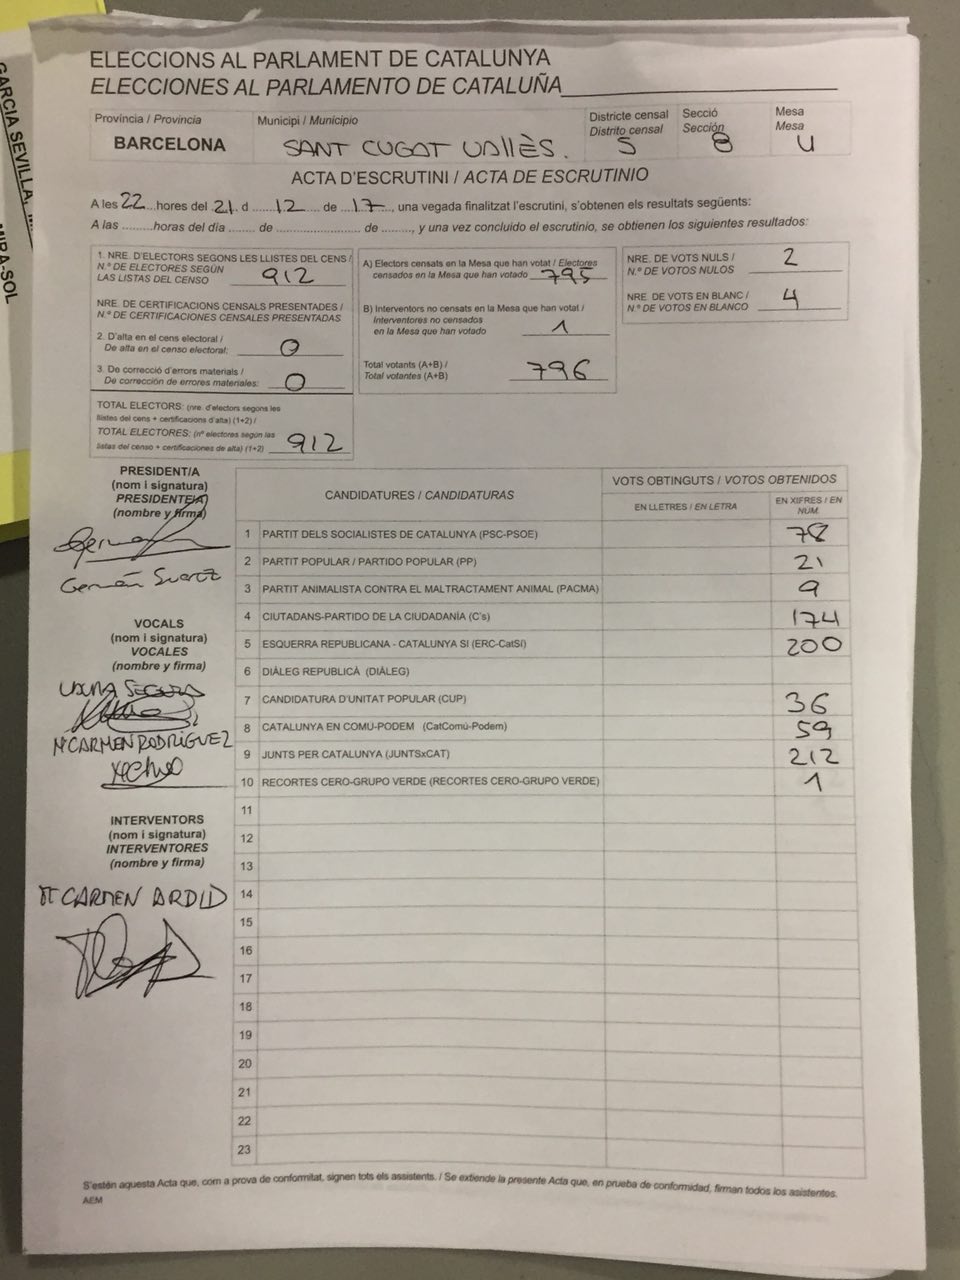 GARCIA SEVILLA,
MIRA-SOL
ELECCIONS AL PARLAMENT DE CATALUNYA
ELECCIONES AL PARLAMENTO DE CATALUÑA
Província / Provincia
BARCELONA
Municipi / Municipio
SANT CUGAT VALLÈS.
Districte censal
Distrito censal
5
Secció
Sección
8
Mesa
Mesa
U
ACTA D'ESCRUTINI / ACTA DE ESCRUTINIO
A les 22 hores del 21 d 12 de 17, una vegada finalitzat l'escrutini, s'obtenen els resultats següents:
A las .........horas del día ....... de ....................... de ........, y una vez concluido el escrutinio, se obtienen los siguientes resultados:
1. NRE. D'ELECTORS SEGONS LES LLISTES DEL CENS /
N.º DE ELECTORES SEGÚN
LAS LISTAS DEL CENSO 912
NRE. DE CERTIFICACIONS CENSALS PRESENTADES /
N.º DE CERTIFICACIONES CENSALES PRESENTADAS
2. D'alta en el cens electoral /
De alta en el censo electoral: 0
3. De correcció d'errors materials /
De corrección de errores materiales: 0
TOTAL ELECTORS: (nre. d'electors segons les
llistes del cens + certificacions d'alta) (1+2) /
TOTAL ELECTORES: (nº electores según las
listas del censo + certificaciones de alta) (1+2) 912
A) Electors censats en la Mesa que han votat / Electores
censados en la Mesa que han votado 795
B) Interventors no censats en la Mesa que han votat /
Interventores no censados
en la Mesa que han votado 1
Total votants (A+B) /
Total votantes (A+B) 796
NRE. DE VOTS NULS /
N.º DE VOTOS NULOS 2
NRE. DE VOTS EN BLANC /
N.º DE VOTOS EN BLANCO 4
PRESIDENT/A
(nom i signatura)
PRESIDENTE/A
(nombre y firma)
Germán Suarez
VOCALS
(nom i signatura)
VOCALES
(nombre y firma)
Mª CARMEN RODRIGUEZ
INTERVENTORS
(nom i signatura)
INTERVENTORES
(nombre y firma)
Mª CARMEN ARDID
CANDIDATURES / CANDIDATURAS
VOTS OBTINGUTS / VOTOS OBTENIDOS
EN LLETRES / EN LETRA
EN XIFRES / EN
NÚM.
1 PARTIT DELS SOCIALISTES DE CATALUNYA (PSC-PSOE) 78
2 PARTIT POPULAR / PARTIDO POPULAR (PP) 21
3 PARTIT ANIMALISTA CONTRA EL MALTRACTAMENT ANIMAL (PACMA) 9
4 CIUTADANS-PARTIDO DE LA CIUDADANÍA (C's) 174
5 ESQUERRA REPUBLICANA - CATALUNYA SÍ (ERC-CatSí) 200
6 DIÀLEG REPUBLICÀ (DIÀLEG)
7 CANDIDATURA D'UNITAT POPULAR (CUP) 36
8 CATALUNYA EN COMÚ-PODEM (CatComú-Podem) 59
9 JUNTS PER CATALUNYA (JUNTSxCAT) 212
10 RECORTES CERO-GRUPO VERDE (RECORTES CERO-GRUPO VERDE) 1
11
12
13
14
15
16
17
18
19
20
21
22
23
S'estén aquesta Acta que, com a prova de conformitat, signen tots els assistents. / Se extiende la presente Acta que, en prueba de conformidad, firman todos los asistentes.
AEM